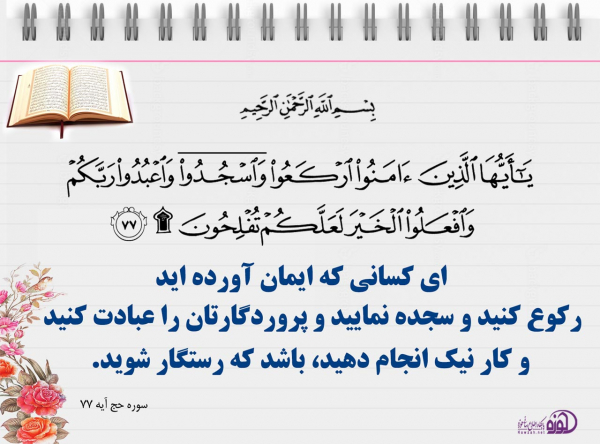 بِسْمِ ٱللَّهِ ٱلرَّحْمَٰنِ ٱلرَّحِيمِ
يَـٰٓأَيُّهَا ٱلَّذِينَ ءَامَنُوا۟ ٱرْكَعُوا۟ وَٱسْجُدُوا۟ وَٱعْبُدُوا۟ رَبَّكُمْ
وَٱفْعَلُوا۟ ٱلْخَيْرَ لَعَلَّكُمْ تُفْلِحُونَ ۩ ٧٧
ای کسانی که ایمان آورده اید
رکوع کنید و سجده نمایید و پروردگارتان را عبادت کنید
و کار نیک انجام دهید، باشد که رستگار شوید.
سوره حج آیه ۷۷
حوزه
Hawzah.net